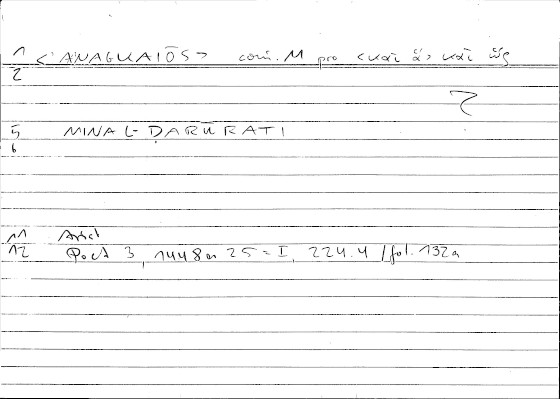 1 <ANAGKAIŌS> coni. M pro <καὶ ἃ> καὶ ὡς
2
5 MINA L-ḌARŪRATI
6
11 Arist
12 Poet 3, 1448a 25 = I, 224.4 / fol. 132a